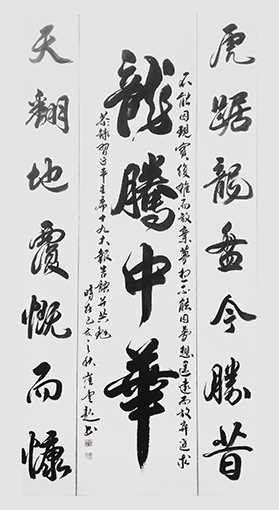 虎踞龍盤今勝昔
不能因現實復雜而放棄夢想不能因夢想遙遠而放弃追求
龍騰中華
恭錄習近平主席十九大報告錦句共勉
時在己亥之秋崔書
天翻地覆慨而慷